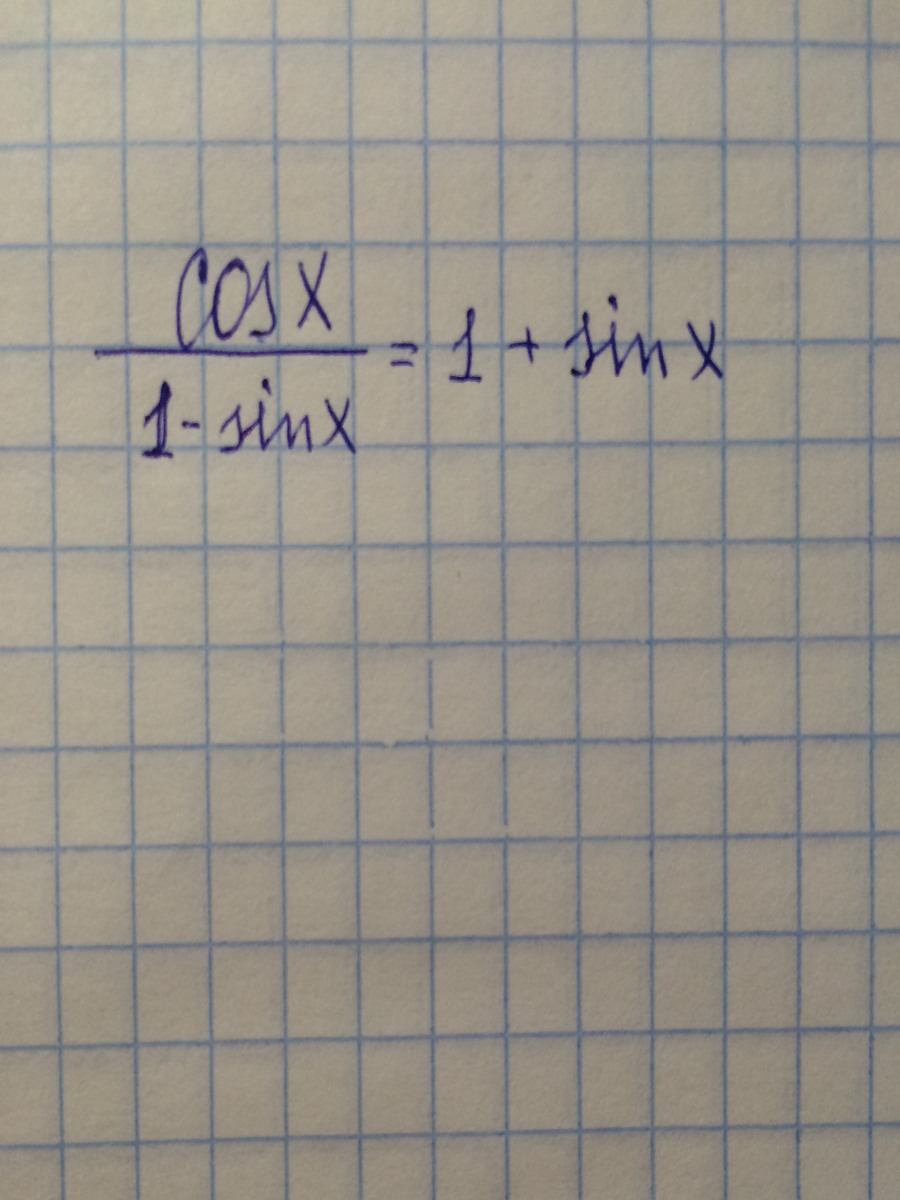 cos x
———— = 1 + sin x
1 - sin x